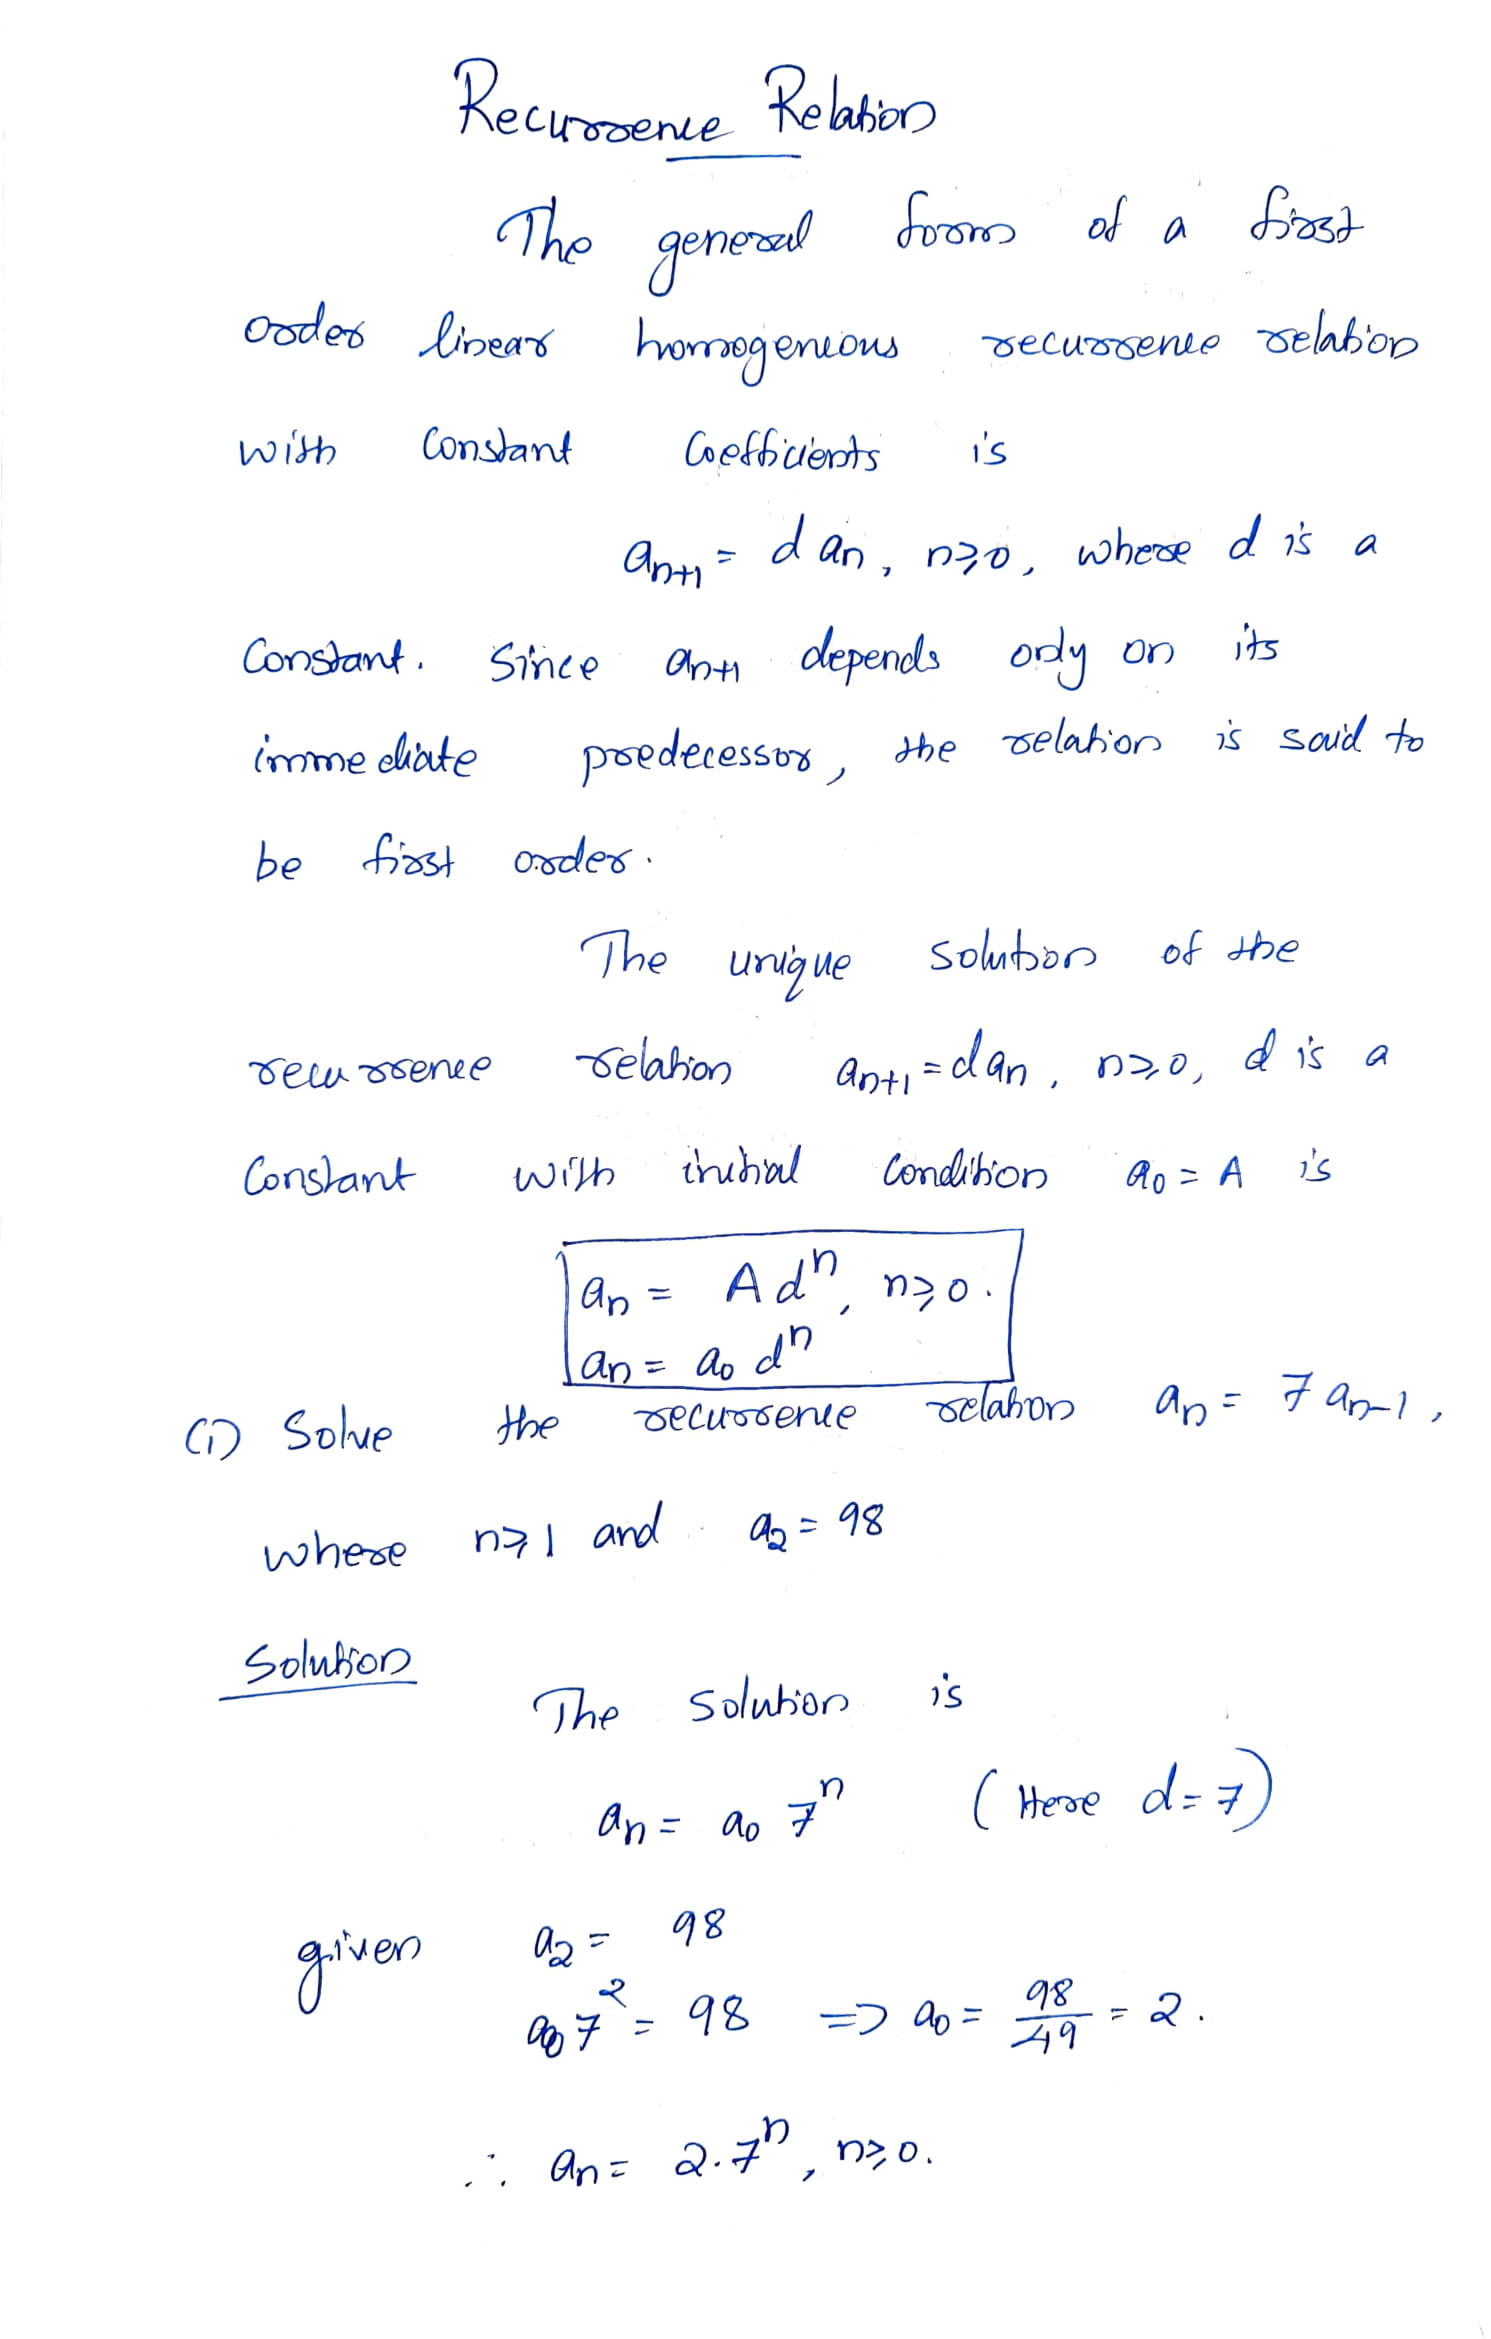 Recurrence Relation
The general form of a first
order linear homogeneous recurrence relation
with Constant Coefficients is
aₙ₊₁ = d aₙ, n≥0, where d is a
Constant. Since aₙ₊₁ depends only on its
immediate predecessor, the relation is said to
be first order.
The unique solution of the
recurrence relation aₙ₊₁ = d aₙ, n≥0, d is a
Constant with initial Condition a₀ = A is
aₙ = A dⁿ, n≥0.
aₙ = a₀ dⁿ
(1) Solve the recurrence relation aₙ = 7 aₙ₋₁,
where n≥1 and a₂ = 98
Solution
The solution is
aₙ = a₀ 7ⁿ (Here d=7)
given a₂ = 98
a₀ 7² = 98 => a₀ = 98/49 = 2.
∴ aₙ = 2.7ⁿ, n≥0.